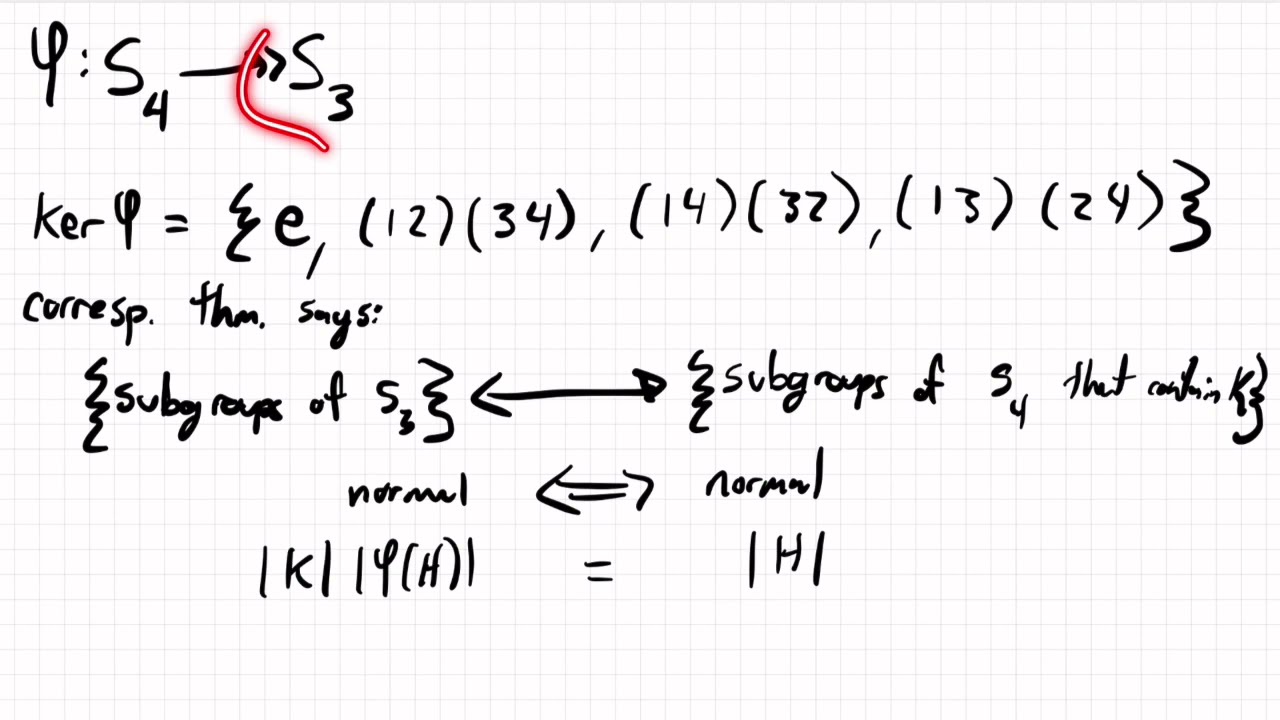 φ: S₄ ↠ S₃
Ker φ = {e, (12)(34), (14)(32), (13)(24)}
corresp. thm. says:
{subgroups of S₃} ⟷ {subgroups of S₄ that contain K}
normal ⟺ normal
|K| |φ(H)| = |H|